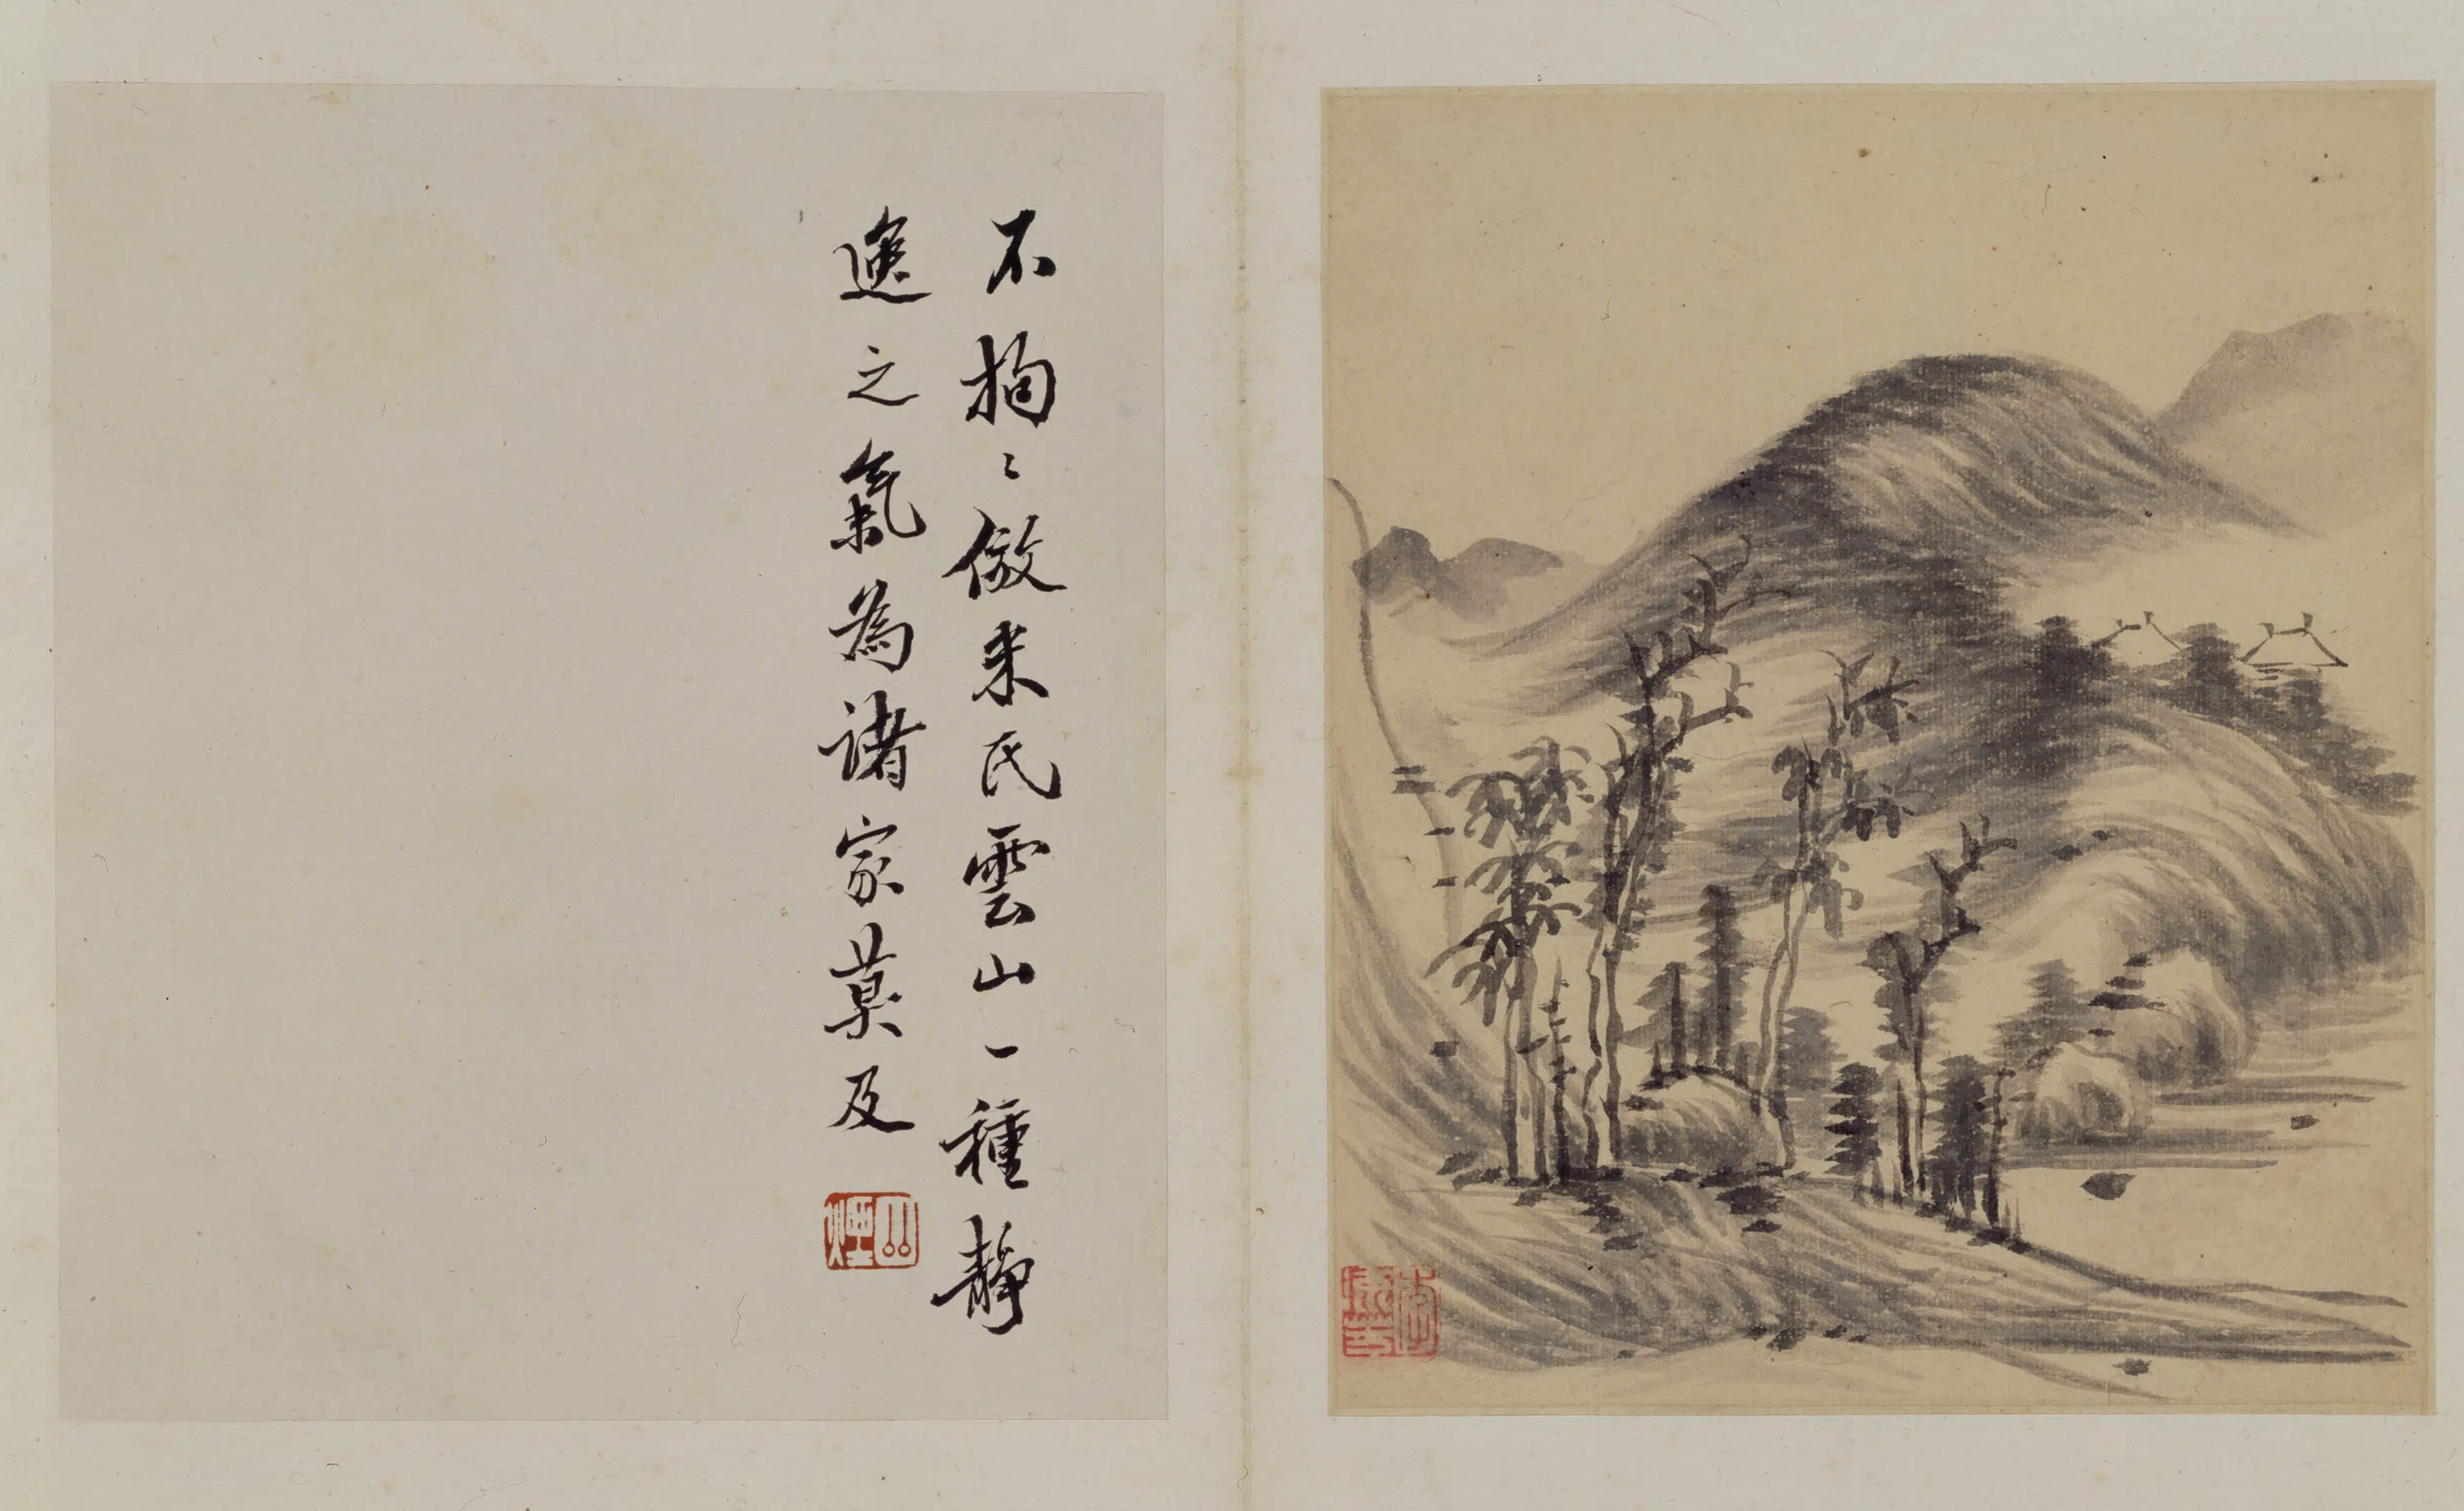 不拘〻倣米氏雲山一種静
逸之氣為諸家莫及